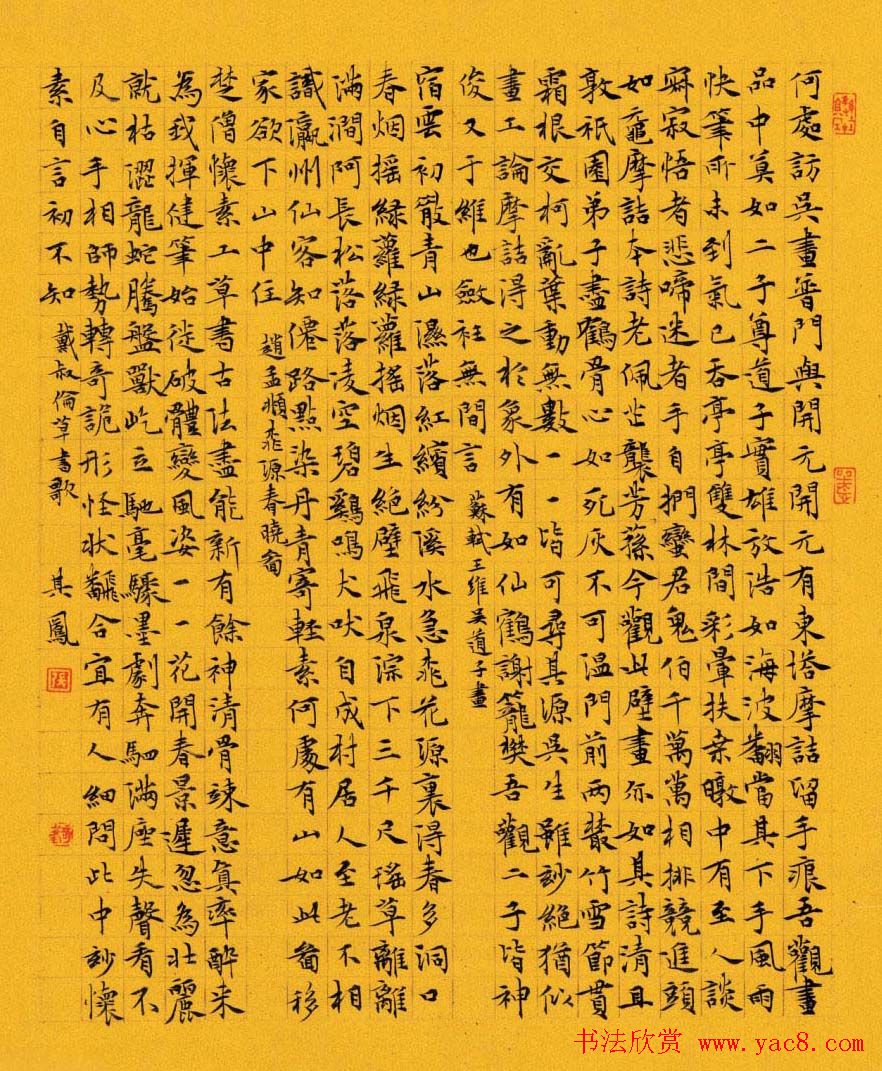 何處訪吳畫普門與開元開元有東塔摩詰留手痕吾觀畫
品中莫如二子尊道子實雄放浩如海波翻當其下手風雨
快筆所未到氣已吞亭亭雙林間彩暈扶桑暾中有至人談
寐寂悟者悲啼迷者手自捫蠻君鬼伯千萬萬相排競進頭
如黿摩詰本詩老佩芷襲芳蓀今觀此壁畫亦如其詩清且
敦祇園弟子盡鶴骨心如死灰不可溫門前兩叢竹雪節貫
霜根交柯亂葉動無數一一皆可尋其源吳生雖妙絕猶似
畫工論摩詰得之於象外有如仙鶴謝籠樊吾觀二子皆神
俊又于維也斂衽無間言 蘇軾王維吳道子畫
宿雲初散青山濕落紅繽紛溪水急桃花源裏得春多洞口
春烟搖綠蘿綠蘿搖烟生絕壁飛泉淙下三千尺瑤草離離
滿澗阿長松落落凌空碧鷄鳴犬吠自成村居人至老不相
識瀛州仙客知僊路點染丹青寄輕素何處有山如此圖移
家欲下山中住 趙孟頫桃源春曉圖
楚僧懷素工草書古法盡能新有餘神清骨竦意真率醉來
為我揮健筆始從破體變風姿一一花開春景遲忽為壯麗
就枯澀龍蛇騰盤獸屹立馳毫驟墨劇奔駟滿座失聲看不
及心手相師勢轉奇詭形怪狀翻合宜有人細問此中妙懷
素自言初不知 戴叔倫草書歌 其鳳
书法欣赏 www.yac8.com